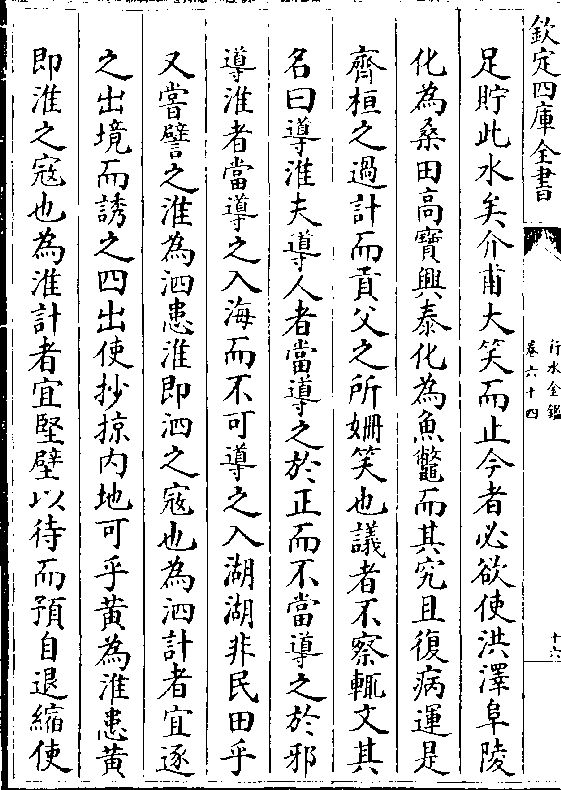 欽定四庫全書
行水金鑑
卷六十四
十六
足貯此水矣介甫大笑而止今者必欲使洪澤阜陵
化為桑田高寶興泰化為魚鼈而其究且復病運是
齊桓之過計而貢父之所姍笑也議者不察輒文其
名曰導淮夫導人者當導之於正而不當導之於邪
導淮者當導之入海而不可導之入湖湖非民田乎
又嘗譬之淮為泗患淮即泗之寇也為泗計者宜逐
之出境而誘之四出使抄掠内地可乎黄為淮患黄
即淮之寇也為淮計者宜堅壁以待而預自退縮使